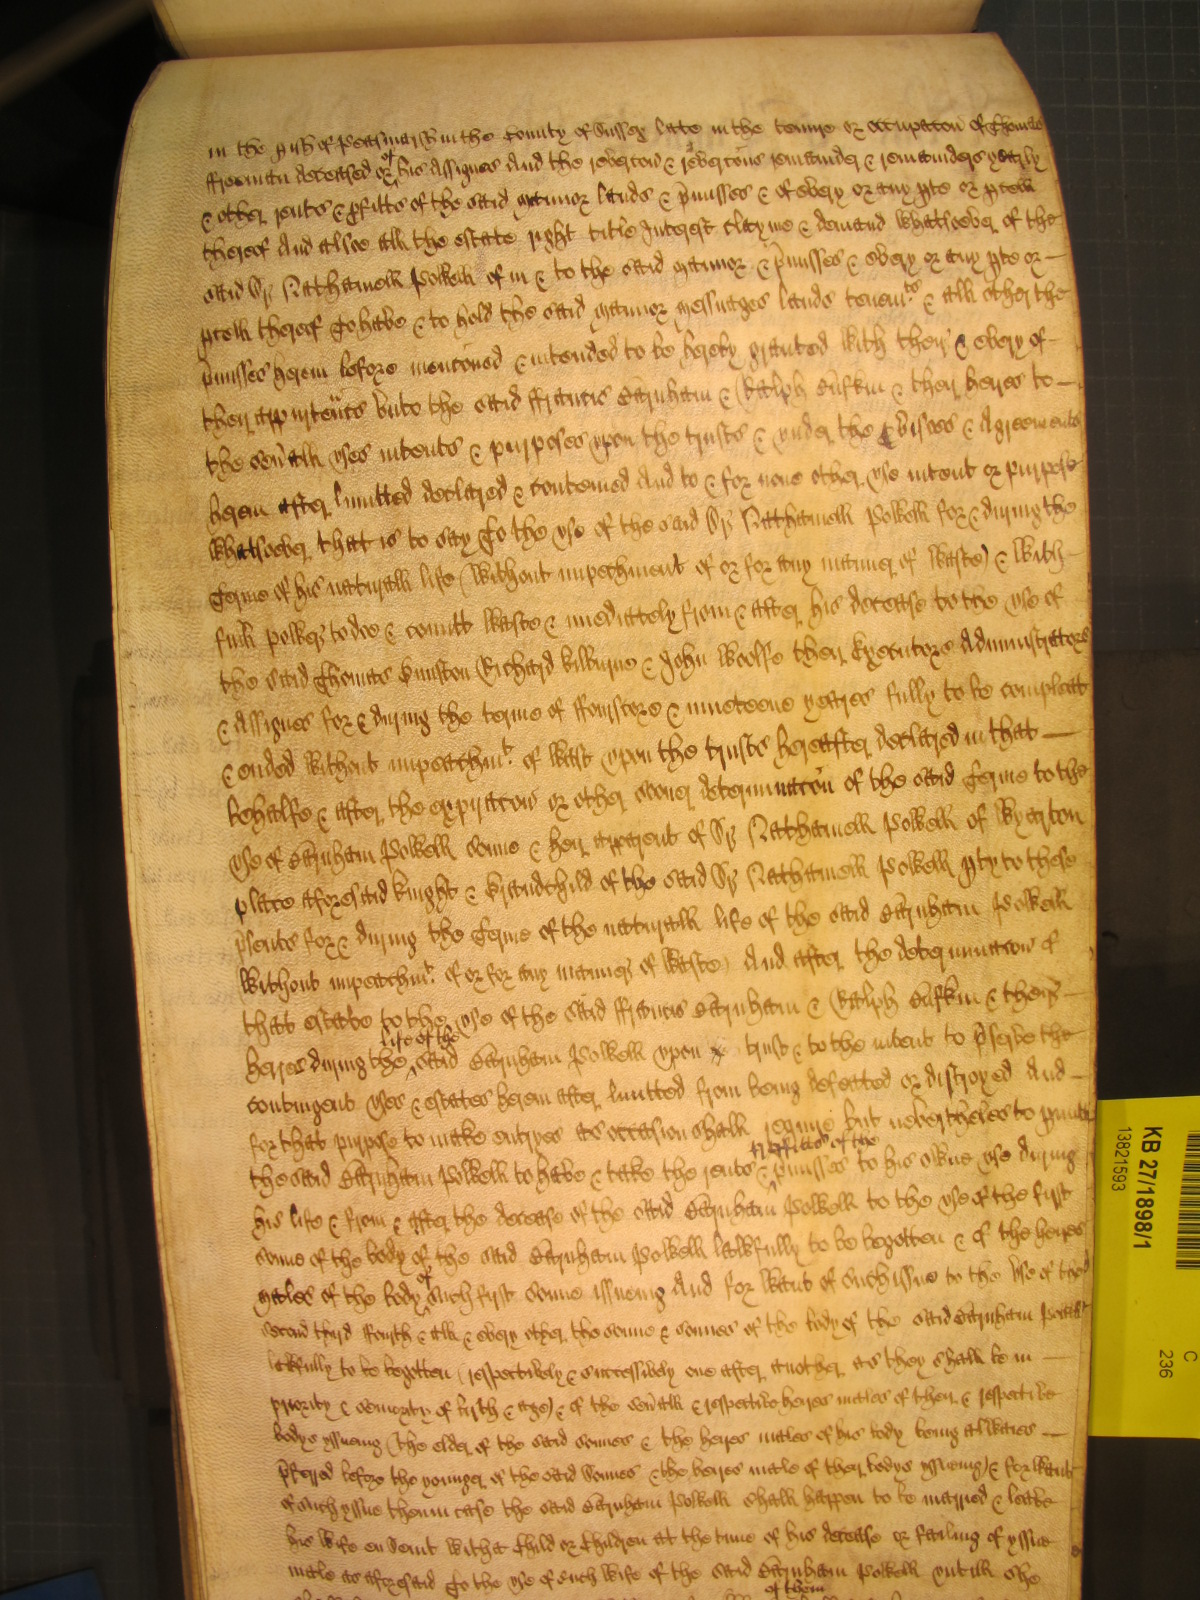 in the pish of Peasmarsh in the County of Sussex late in the tenure or occupacon of Thomas
ffreeman deceased or of his Assignes And the revercon & revercons remainder & remainders yearly
& other rents & pfitts of the said mannor lands & pmisses & of every or any pte or pcell
thereof And alsoe all the estate right title Interest clayme & demand whatsoever of the
said Sr Nathaniell Powell of in & to the said mannor & pmisses & every or any pte or
pcell thereof To have & to hold the said mannor messuages lands tenemts & all other the
pmisses herein before menconed & intended to be hereby granted with their & every of
their appurtencs unto the said ffrancis Barnham & Ralph Bufkin & their heires to
the sevall uses intents & purposes upon the trusts & under the pvisoes & Agreements
herein after limitted declared & conteined And to & for none other use intent or purpose
whatsoever that is to say To the use of the said Sr Nathaniell Powell for & during the
Terme of his naturall life (without impechment of or for any manner of waste) & with
full power to doe & comitt waste & imediately from & after his decease to the use of
the said Thomas Dunston Richard Kilburne & John Woolfe their Executors Administrators
& Assignes for & during the terme of ffourscore & nineteene yeares fully to be compleat
& ended without impeachmt. of wast upon the trusts hereafter declared in that
behalfe & after the expiracon or other sooner determinacon of the said Terme to the
use of Barnham Powell sonne & heir apparent of Sr Nathaniell Powell of Wyarton
place aforesaid knight & Grandchild of the said Sr Nathaniell Powell pty to these
psents for & during the Terme of the naturall life of the said Barnham Powell
without impeachmt. of or for any manner of waste) And after the determinacon of
that estate to the use of the said ffrancis Barnham & Ralph Bufkin & their
life of the
heires during the said Barnham Powell upon trust & to the intent to pserve the
contingent uses & estates herein after limitted from being defeated or distroyed And
for that purpose to make entryes as occasion shall require but neverthelesse to pmitt
pfitts of the
the said Barnham Powell to have & take the rents & pmisses to his owne use during
his life & from & after the decease of the said Barnham Powell to the use of the first
sonne of the body of the said Barnham Powell lawfully to be begotten & of the heires
males of the body of such first sonne issueing And for want of such issue to the use of the
second third ffourth & all & every other the sonne & sonnes of the body of the said Barnham Powell
lawfully to be begotten (respectively & successively one after another as they shall be in
priority & seniority of birth & age) & of the sevall & respective heires males of their & respective
bodys yssueing (the elder of the said sonnes & the heires males of his body being alwaies
pferred before the younger of the said Sonnes & the heires male of their bodys yssueing) & for want
of such yssue then in case the said Barnham Powell shall happen to be married & leave
his wife en Seint with a Child or Children at the time of his decease or faileing of yssue
male as aforesaid To the use of such wife of the said Barnham Powell untill she
of them
KB 27/1898/1
13821593
C
236